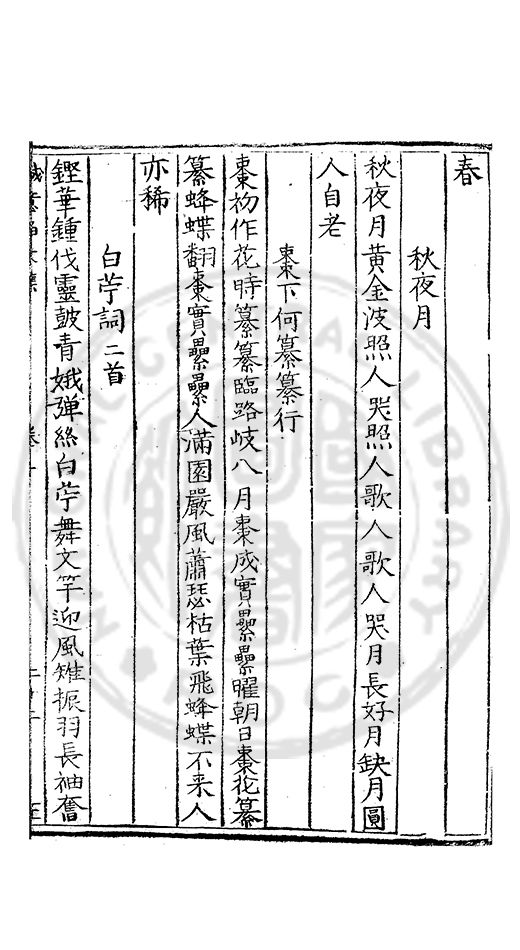 春
秋夜月
秋夜月黃金波照人哭照人歌人歌人哭月長好月缺月圓
人自老
棗下何纂纂行
棗初作花時纂纂臨路岐八月棗成實纍纍曜朝日棗花纂
纂蜂蝶翻棗實纍纍人滿園嚴風蕭瑟枯葉飛蜂蝶不来人
亦稀
白苧詞二首
鏗華鍾伐靈皷青娥彈絲白苧舞文竿迎風雉振羽長袖奮